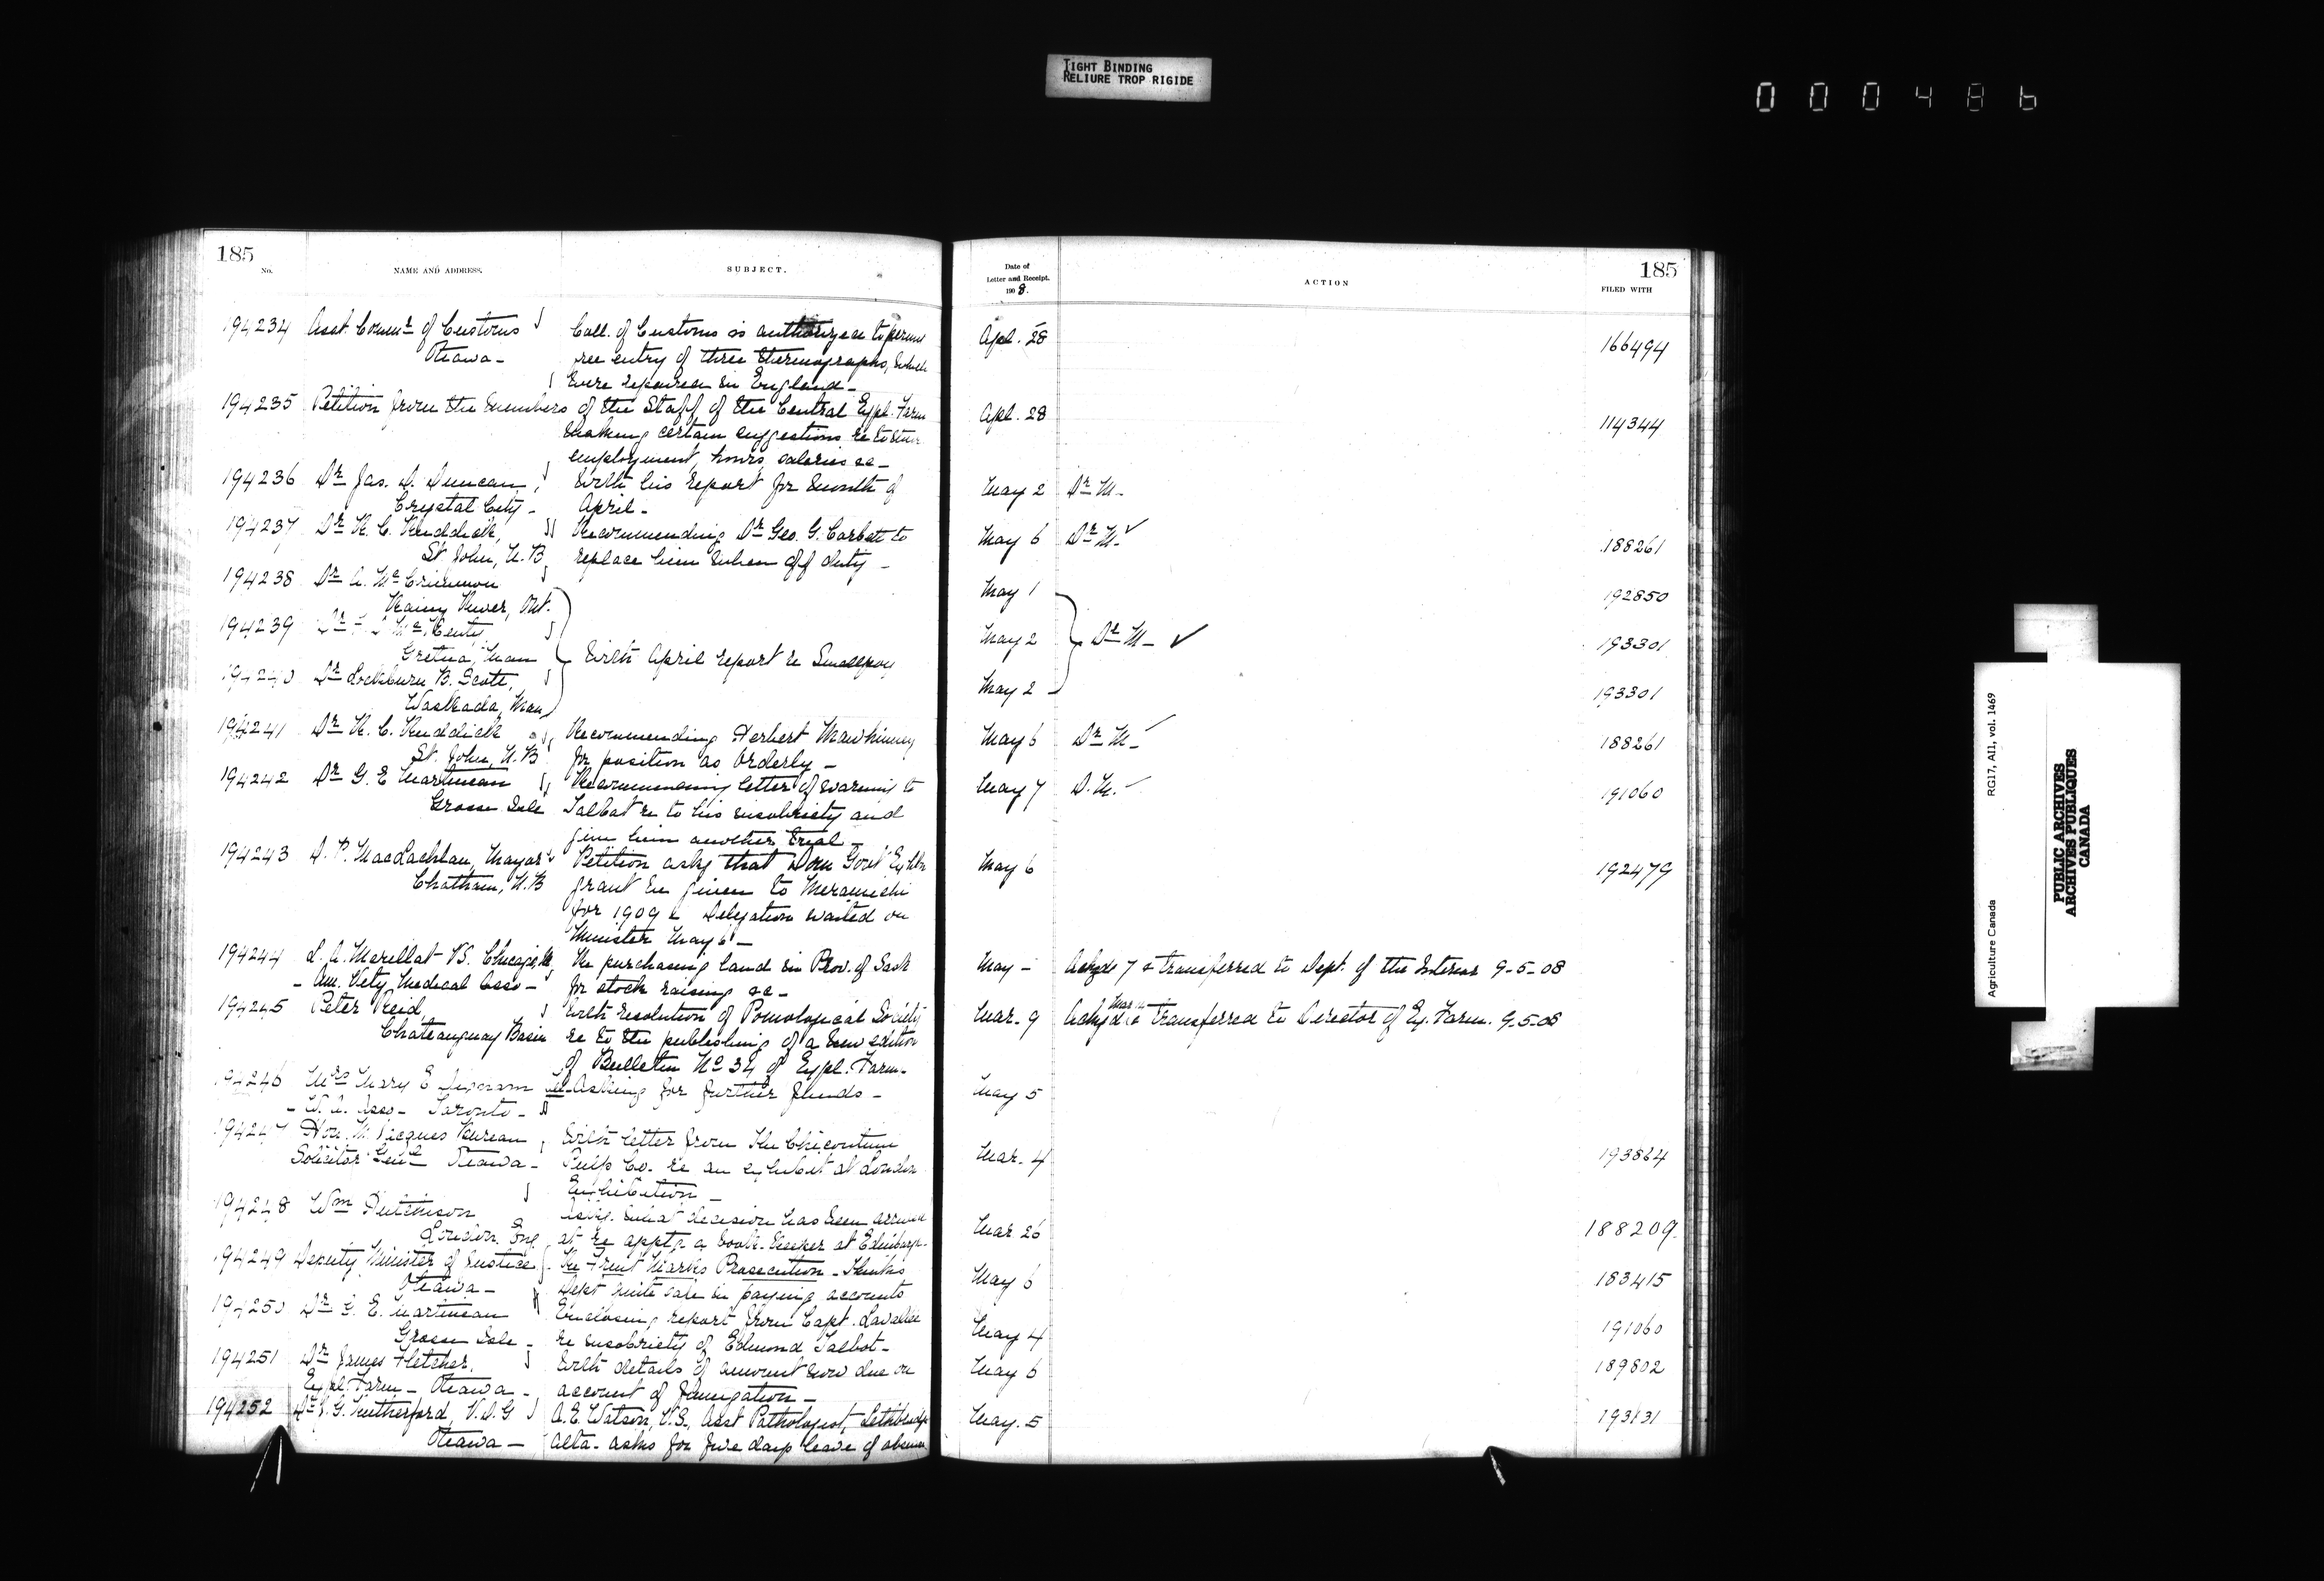 TIGHT BINDING
RELIURE TROP RIGIDE
000486
185
No.
NAME AND ADDRESS.
SUBJECT.
194234 Asst. Commr. of Customs
Ottawa -
Coll. of Customs is authorized to permit
free entry of three thermographs, which
were repaired in England -
194235 Petition from the members of the Staff of the Central Expl. Farm
making certain suggestions re to their
employment, hours, salaries &c -
194236 Dr. Jas. D. Duncan,
Crystal City -
With his report for month of
April -
194237 Dr. R. C. Ruddick,
St. John, N.B.
Recommending Dr. Geo. G. Corbet to
replace him when off duty -
194238 Dr. A. McCrimmon
Rainy River, Ont.
194239 Dr.
Gretna, Man
194240 Dr. Lockburn B. Scott,
Waskada, Man
With April report re Smallpox
194241 Dr. R. C. Ruddick
St. John, N.B.
Recommending Herbert Mawhinney
for position as Orderly -
194242 Dr. G. E. Martineau
Grosse Isle
Recommending letter of warning to
Talbot re to his insobriety and
give him another trial -
194243 D. P. MacLachlan, Mayor
Chatham, N.B
Petition askg that Dom Govt Exhbn
grant be given to Miramichi
for 1909 & Delegation waited on
Minister May 6 -
194244 L. A. Merillat V.S. Chicago, Ill
- Am. Vety Medical Assn -
Re purchasing land in Prov. of Sask
for stock raising &c -
194245 Peter Reid,
Chateauguay Basin
With resolution of Pomological Society
re to the publishing of a new edition
of Bulletin No 34 of Expl. Farm -
194246 Mrs Mary E
- W. A. Asso - Toronto -
Asking for further funds -
194247 Hon. M. Jacques Bureau
Solicitor Genl Ottawa -
With letter from The Chicoutimi
Pulp Co. re an exhibit at London
Exhibition -
194248 Wm Hutchison
London. Eng.
Askg. what decision has been arrived
at re appt. a Book-keeper at Edinburgh.
194249 Deputy Minister of Justice
Ottawa -
Re Fruit Marks Prosecution - Thinks
Dept quite safe in paying accounts
194250 Dr. G. E. Martineau
Grosse Isle -
Enclosing report from Capt. Lavallee
re insobriety of Edmond Talbot -
194251 Dr. James Fletcher.
Expl. Farm - Ottawa -
With details of amount now due on
account of fumigation -
194252 Dr. J. G. Rutherford, V.D.G
Ottawa -
A. E. Watson, V.S., Asst Pathologist, Lethbridge
Alta - asks for five days leave of absence
Date of
Letter and Receipt.
1908.
ACTION
185
FILED WITH
Apl. 28 166494
Apl. 28 114344
May 2 Dr. M -
May 6 Dr. M. ✓ 188261
May 1 192850
May 2 Dr. M - ✓ 193301
May 2 193301
May 6 Dr. M - ✓ 188261
May 7 D. M. ✓ 191060
May 6 192479
May - Ackgd 7 & transferred to Dept. of the Interior 9-5-08
Mar. 9 Ackgd & transferred to Director of Ex. Farm. 9-5-08
May 5
Mar. 4 193864
Mar 26 188209.
May 6 183415
May 4 191060
May 6 189802
May. 5 193131
Agriculture Canada
RG17, AII, vol. 1469
PUBLIC ARCHIVES
ARCHIVES PUBLIQUES
CANADA